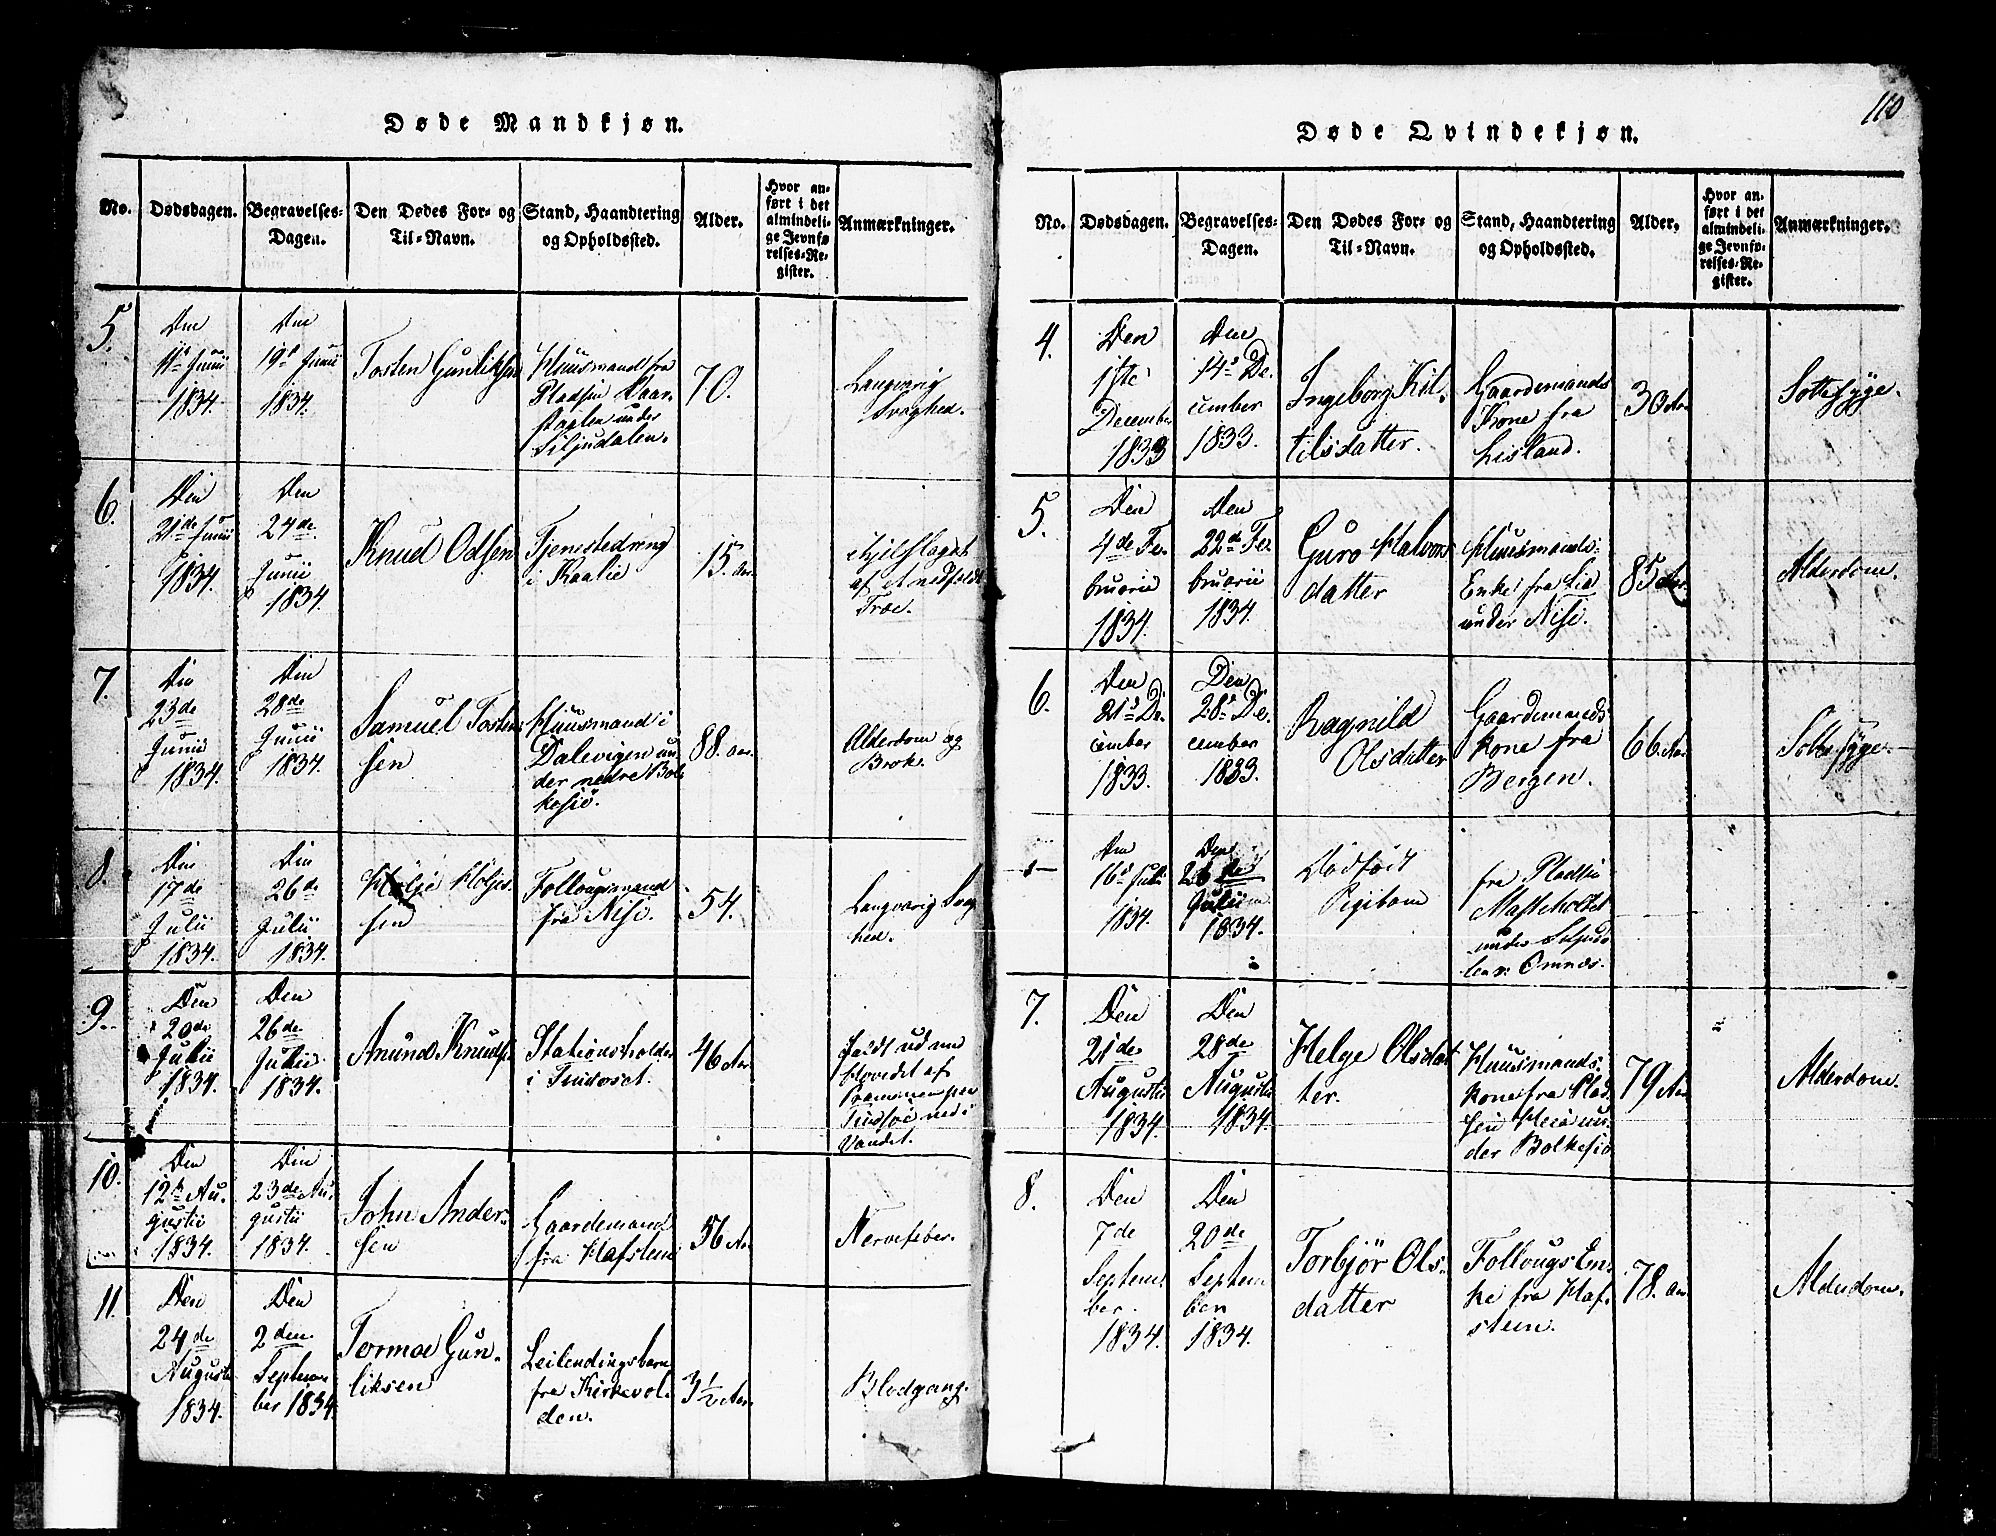 110
Døde Mandkjøn.
No.
Dødsdagen.
Begravelses-
Dagen.
Den Dødes For- og
Til-Navn.
Stand, Haandtering
og Opholdssted.
Alder.
Hvor an-
ført i det
almindeli-
ge Jevnfø-
relses-Re-
gister.
Anmærkninger.
5.
Den
Junii
1834.
Den
19de Junii
1834.
Tosten Gunliksen
Huusmand fra
Pladsen
under
Siljudalen.
70.
Langvarig
Svaghed.
6.
Den
21de Junii
1834.
Den
24de
Junii
1834.
Knud Odsen
Tjenestedreng
i Kaalie
15. Aar
ihjelslaget
af et nedfaldt
Træ.
7.
Den
23de
Junii
1834.
Den
28de
Junii
1834.
Samuel Tosten-
sen
Huusmand i
Dalevigen un-
der nedre Bol-
kesiø.
88. Aar
Alderdom og
Brok.
8.
Den
17de
Julii
1834.
Den
26de
Julii
1834.
Holje Holjes-
sen
Follougsmand
fra Nise.
54.
Langvarig Svag-
hed.
9.
Den
20de
Julii
1834.
Den
26de
Julii
1834.
Amund Knuds.
Stationsholder
i Tindoset.
46 Aar
faldt ud med
Hovedet af
Prammen paa
Tindsøe ned i
Vandet.
10.
Den
12te Au-
gustii
1834.
Den
23de Au-
gustii
1834.
John Ander-
sen
Gaardemand
fra Hafsteen
56 Aar
Nervefeber.
11.
Den
24de
Augusti
1834.
Den
2den
Septem-
ber 1834
Tormoe Gun-
liksen
Leilendingsbarn
fra Kirkevol-
den.
3½ Aar.
Blodgang.
Døde Qvindekjøn.
No.
Dødsdagen.
Begravelses-
Dagen.
Den Dødes For- og
Til-Navn.
Stand, Haandtering
og Opholdssted.
Alder.
Hvor an-
ført i det
almindeli-
ge Jevnfø-
relses-Re-
gister.
Anmærkninger.
4.
Den
1ste
December
1833
Den
14de De-
cember
1833.
Ingeborg Kit-
tilsdatter.
Gaardemands
Kone fra
Lisland.
30 Aar
Sottesyge.
5.
Den
4de Fe-
bruarii
1834.
Den
22de Fe-
bruarii
1834.
Guro Halvors
datter
Huusmands-
Enke fra Lia
under Nise.
85 Aar
Alderdom.
6.
Den
21de De-
cember
1833.
Den
28de De-
cember
1833.
Ragnild
Olsdatter
Gaardemands
Kone fra
Bergen.
66 Aar
Sottesyge
Den
16de Julii
1834.
Den
26de
Julii
1834.
Dødfødt
Pigebarn
fra Pladsen
Masteholtet
under
Omnæs.
7.
Den
21de
Augustii
1834.
Den
28de
Augusti
1834.
Helge Olsdat
ter.
Huusmands-
kone fra Plad-
sen Heia un-
der Bolkesiø
79 Aar
Alderdom.
8.
Den
7de
Septem-
ber
1834.
Den
20de
Septem
ber
1834.
Torbjør Ols-
datter
Follougs En-
ke fra Haf-
steen.
78. Aar
Alderdom.